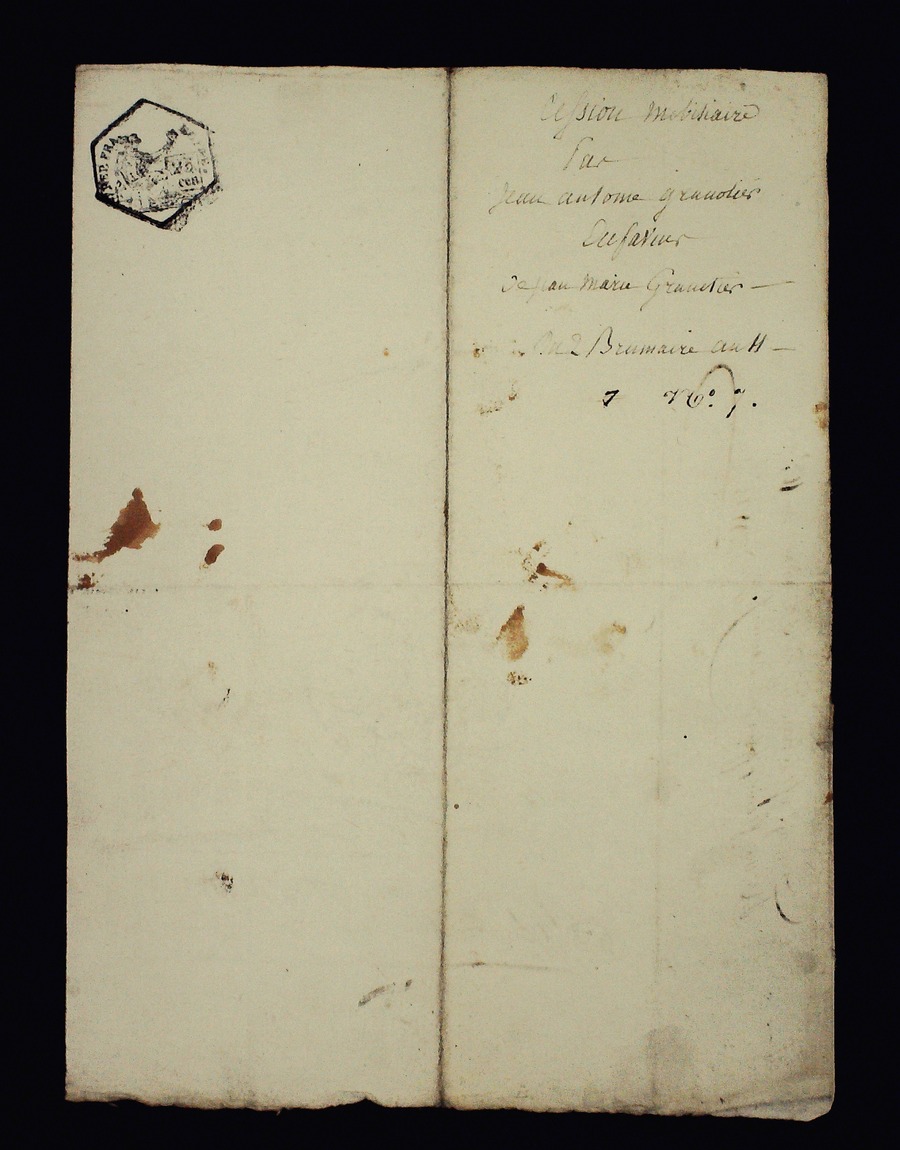 REP. FRA
cen
Cession mobiliaire
Par
Jean antoine granotier
En faveur
De jean marie Granotier —
Du 2 Brumaire an 11 —
7 No. 7.